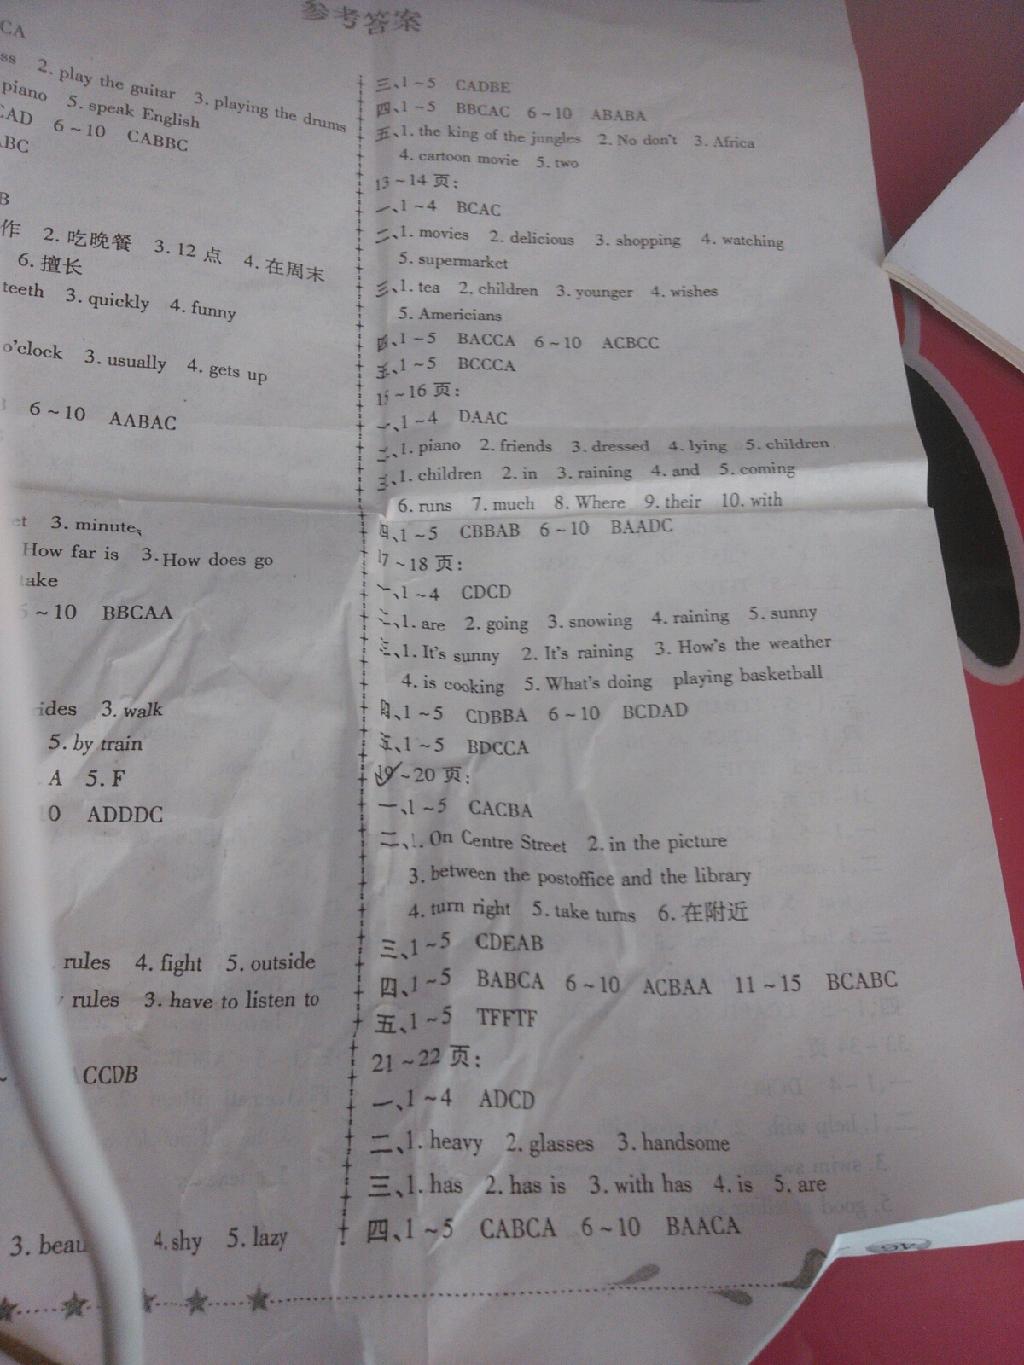 参考答案
CA
ss 2. play the guitar 3. playing the drums
piano 5. speak English
CAD 6~10 CABBC
ABC
B
作 2. 吃晚餐 3. 12 点 4. 在周末
6. 擅长
teeth 3. quickly 4. funny
o'clock 3. usually 4. gets up
6~10 AABAC
et 3. minute
How far is 3. How does go
take
5~10 BBCAA
ides 3. walk
5. by train
A 5. F
0 ADDDC
rules 4. fight 5. outside
rules 3. have to listen to
ACCDB
3. beau 4. shy 5. lazy
三、1~5 CADBE
四、1~5 BBCAC 6~10 ABABA
五、1. the king of the jungles 2. No don't 3. Africa
4. cartoon movie 5. two
13~14 页:
一、1~4 BCAC
二、1. movies 2. delicious 3. shopping 4. watching
5. supermarket
三、1. tea 2. children 3. younger 4. wishes
5. Americians
四、1~5 BACCA 6~10 ACBCC
五、1~5 BCCCA
15~16 页:
一、1~4 DAAC
二、1. piano 2. friends 3. dressed 4. lying 5. children
三、1. children 2. in 3. raining 4. and 5. coming
6. runs 7. much 8. Where 9. their 10. with
四、1~5 CBBAB 6~10 BAADC
17~18 页:
一、1~4 CDCD
二、1. are 2. going 3. snowing 4. raining 5. sunny
三、1. It's sunny 2. It's raining 3. How's the weather
4. is cooking 5. What's doing playing basketball
四、1~5 CDBBA 6~10 BCDAD
五、1~5 BDCCA
19~20 页:
一、1~5 CACBA
二、1. On Centre Street 2. in the picture
3. between the postoffice and the library
4. turn right 5. take turns 6. 在附近
三、1~5 CDEAB
四、1~5 BABCA 6~10 ACBAA 11~15 BCABC
五、1~5 TFFTF
21~22 页:
一、1~4 ADCD
二、1. heavy 2. glasses 3. handsome
三、1. has 2. has is 3. with has 4. is 5. are
四、1~5 CABCA 6~10 BAACA